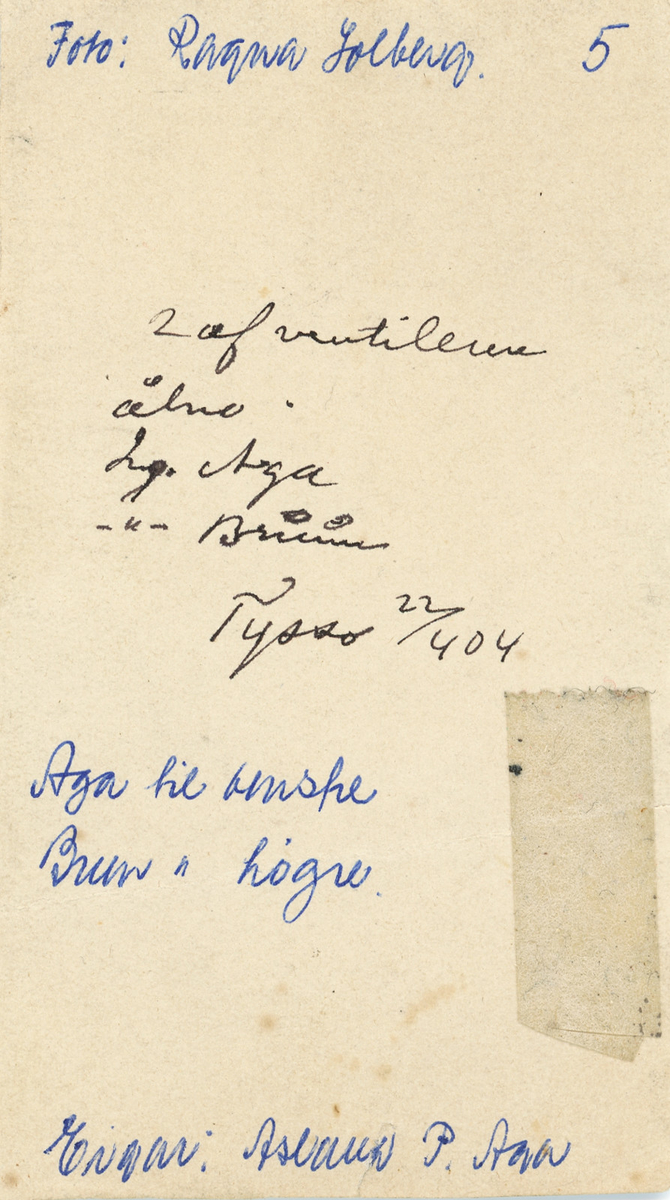 Foto: Ragna Solberg. 5
2 af ventilerne
åbne.
Ing. Aga
-"- Bruun
Tysso 22/4 04
Aga til venstre
Bruun " høgre.
Eigar: Aslaug P. Aga